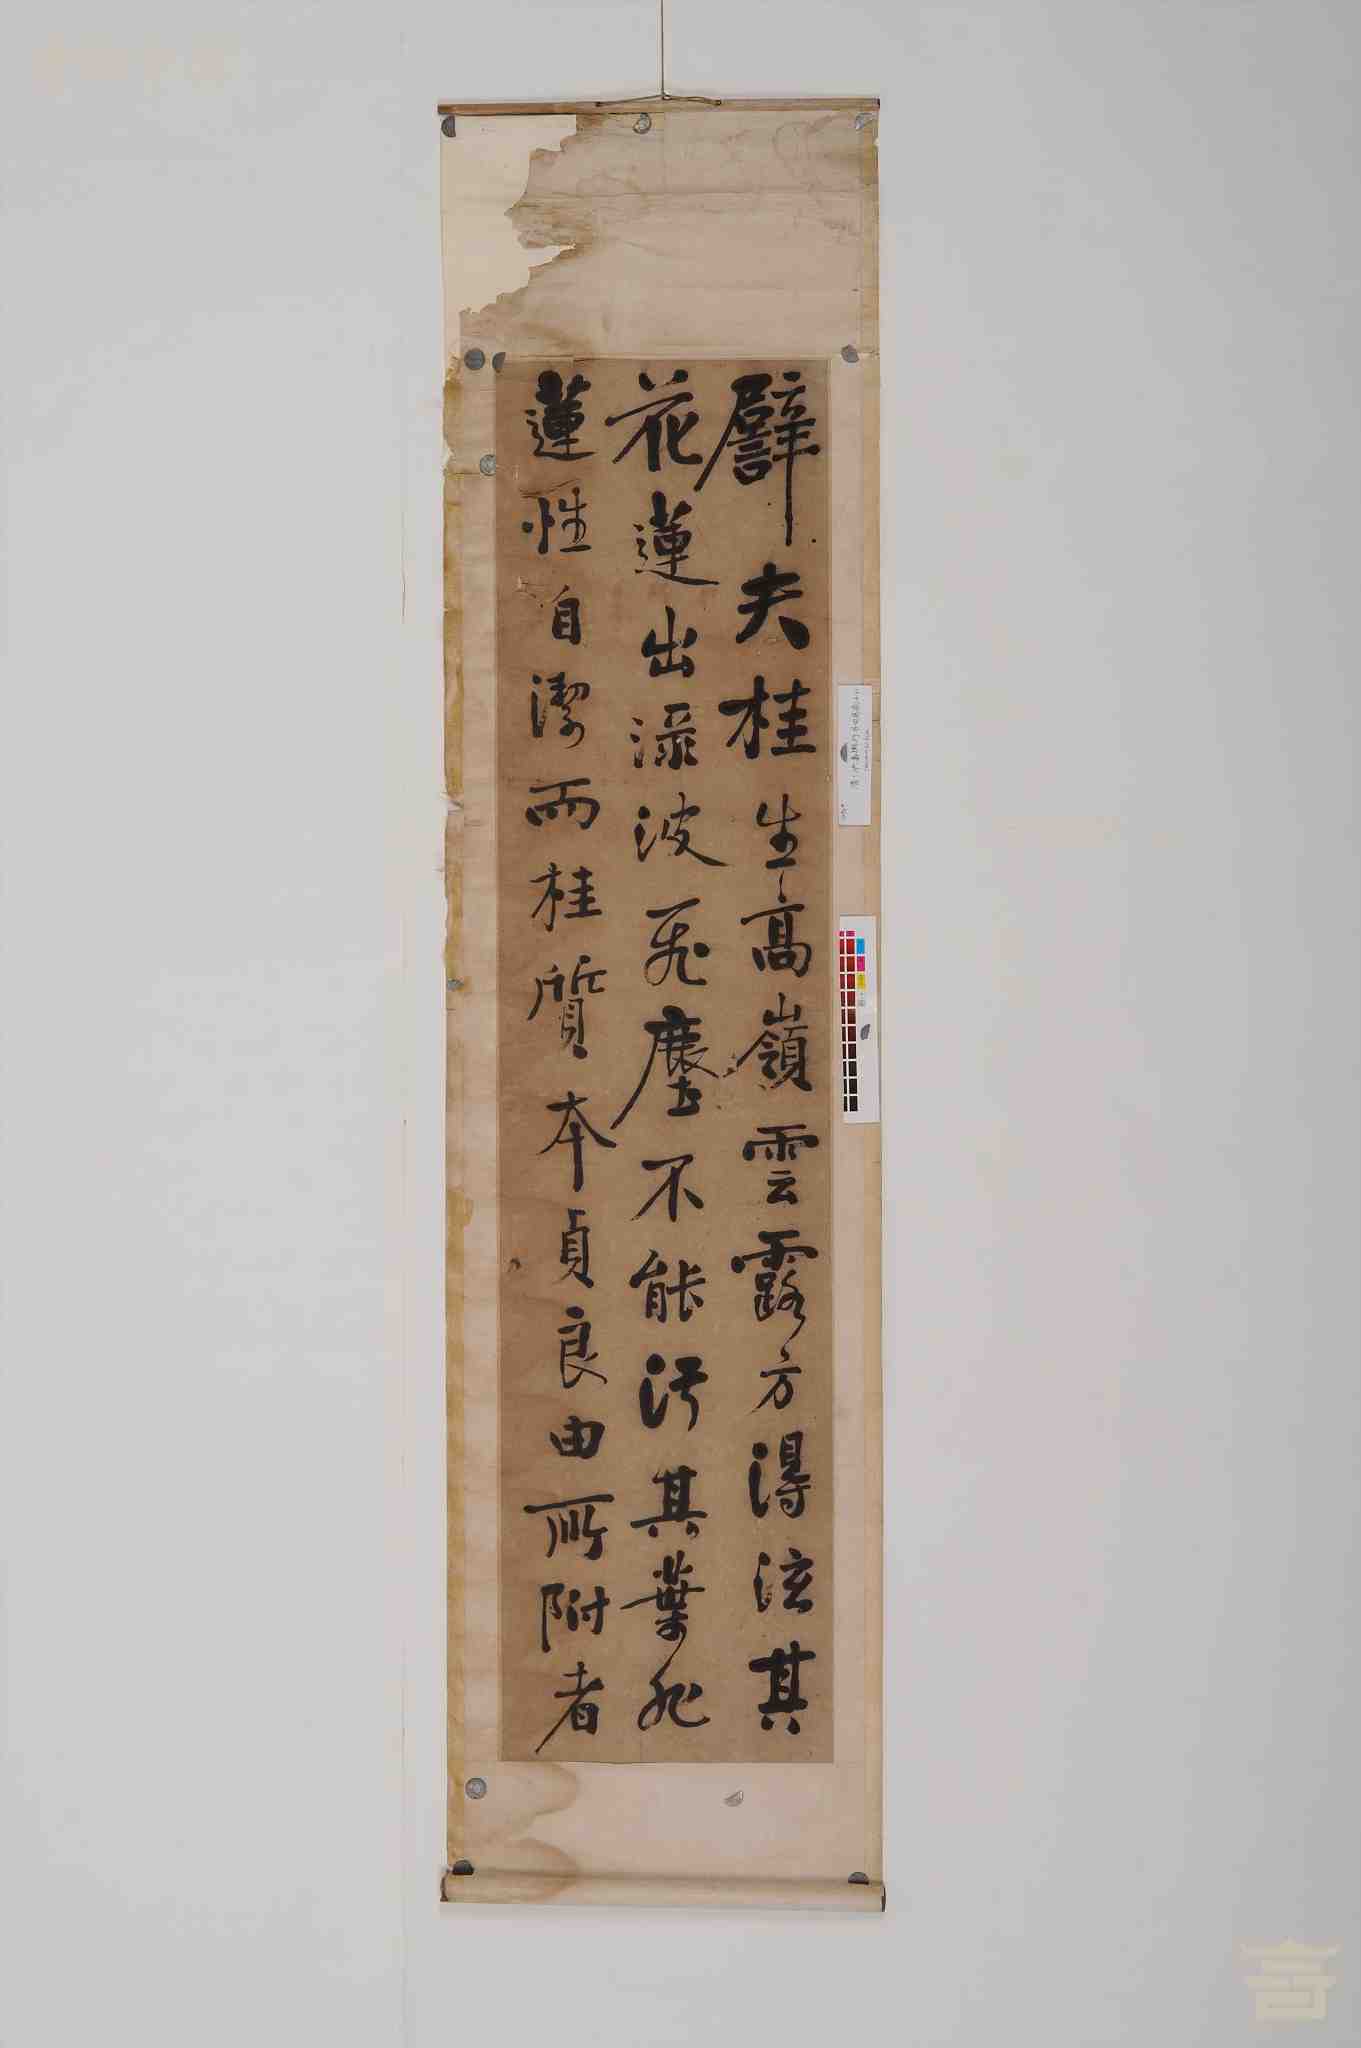 譬夫桂生高嶺雲露方得泫其
花蓮出淥波飛塵不能污其葉非
蓮性自潔而桂質本貞良由所附者